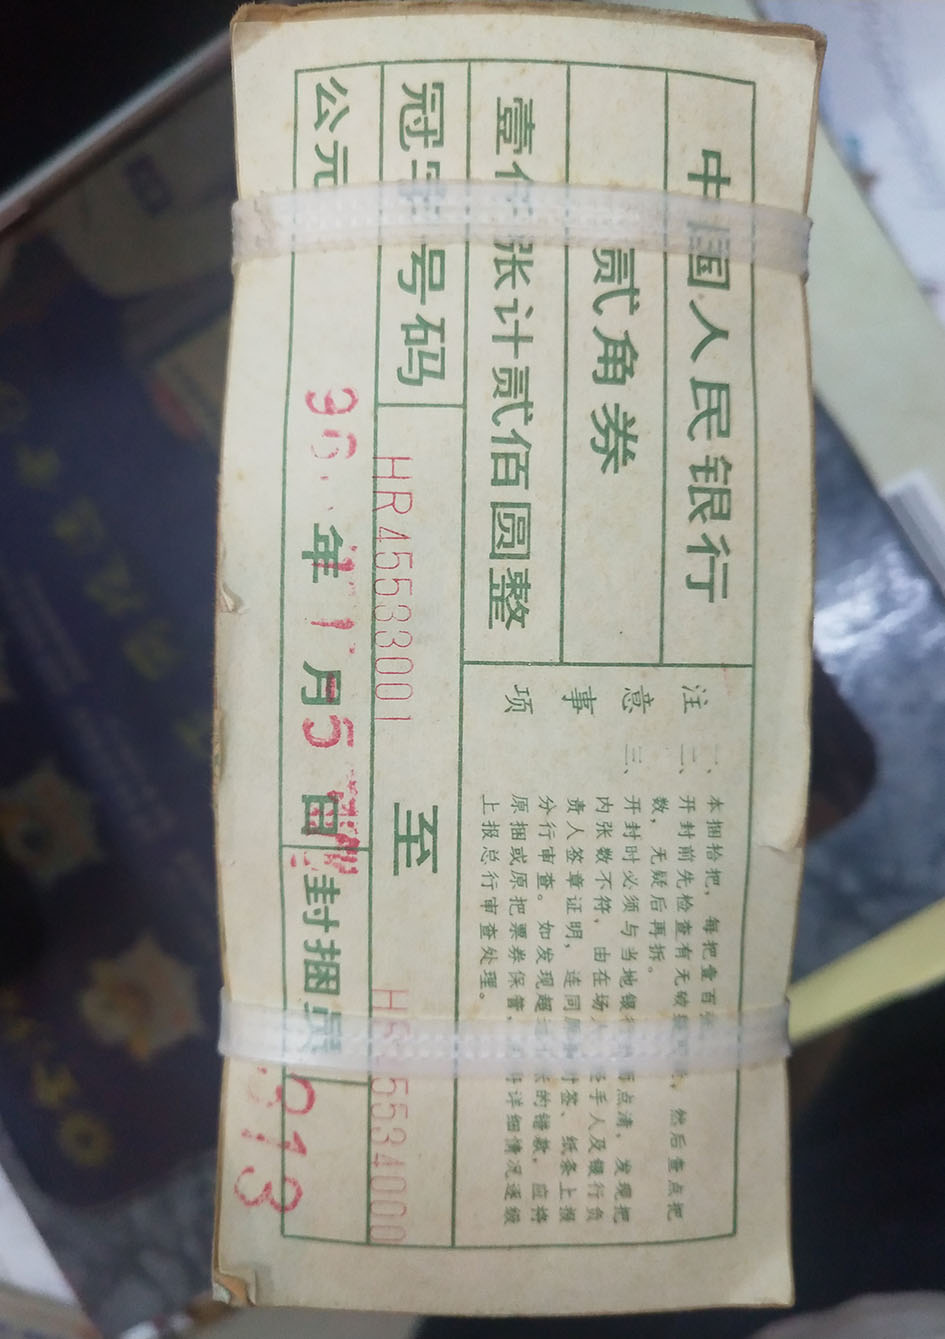 中国人民银行
贰角券
壹佰张计贰佰圆整
冠字号码 HR45533001 至
公元 96 年 1 月 5 日 封捆员 813
注意事项
一、本捆拾把，每把壹百
二、开封前先检查有无破 然后查点把
数，无疑后再拆。
三、开封时必须与当地银 点清，发现把
内张数不符，由在场 手人及银行负
责人签章证明，连同原 封签、纸条上报
分行审查。如发现超 的错款，应将
原捆或原把票券保管， 详细情况逐级
上报总行审查处理。